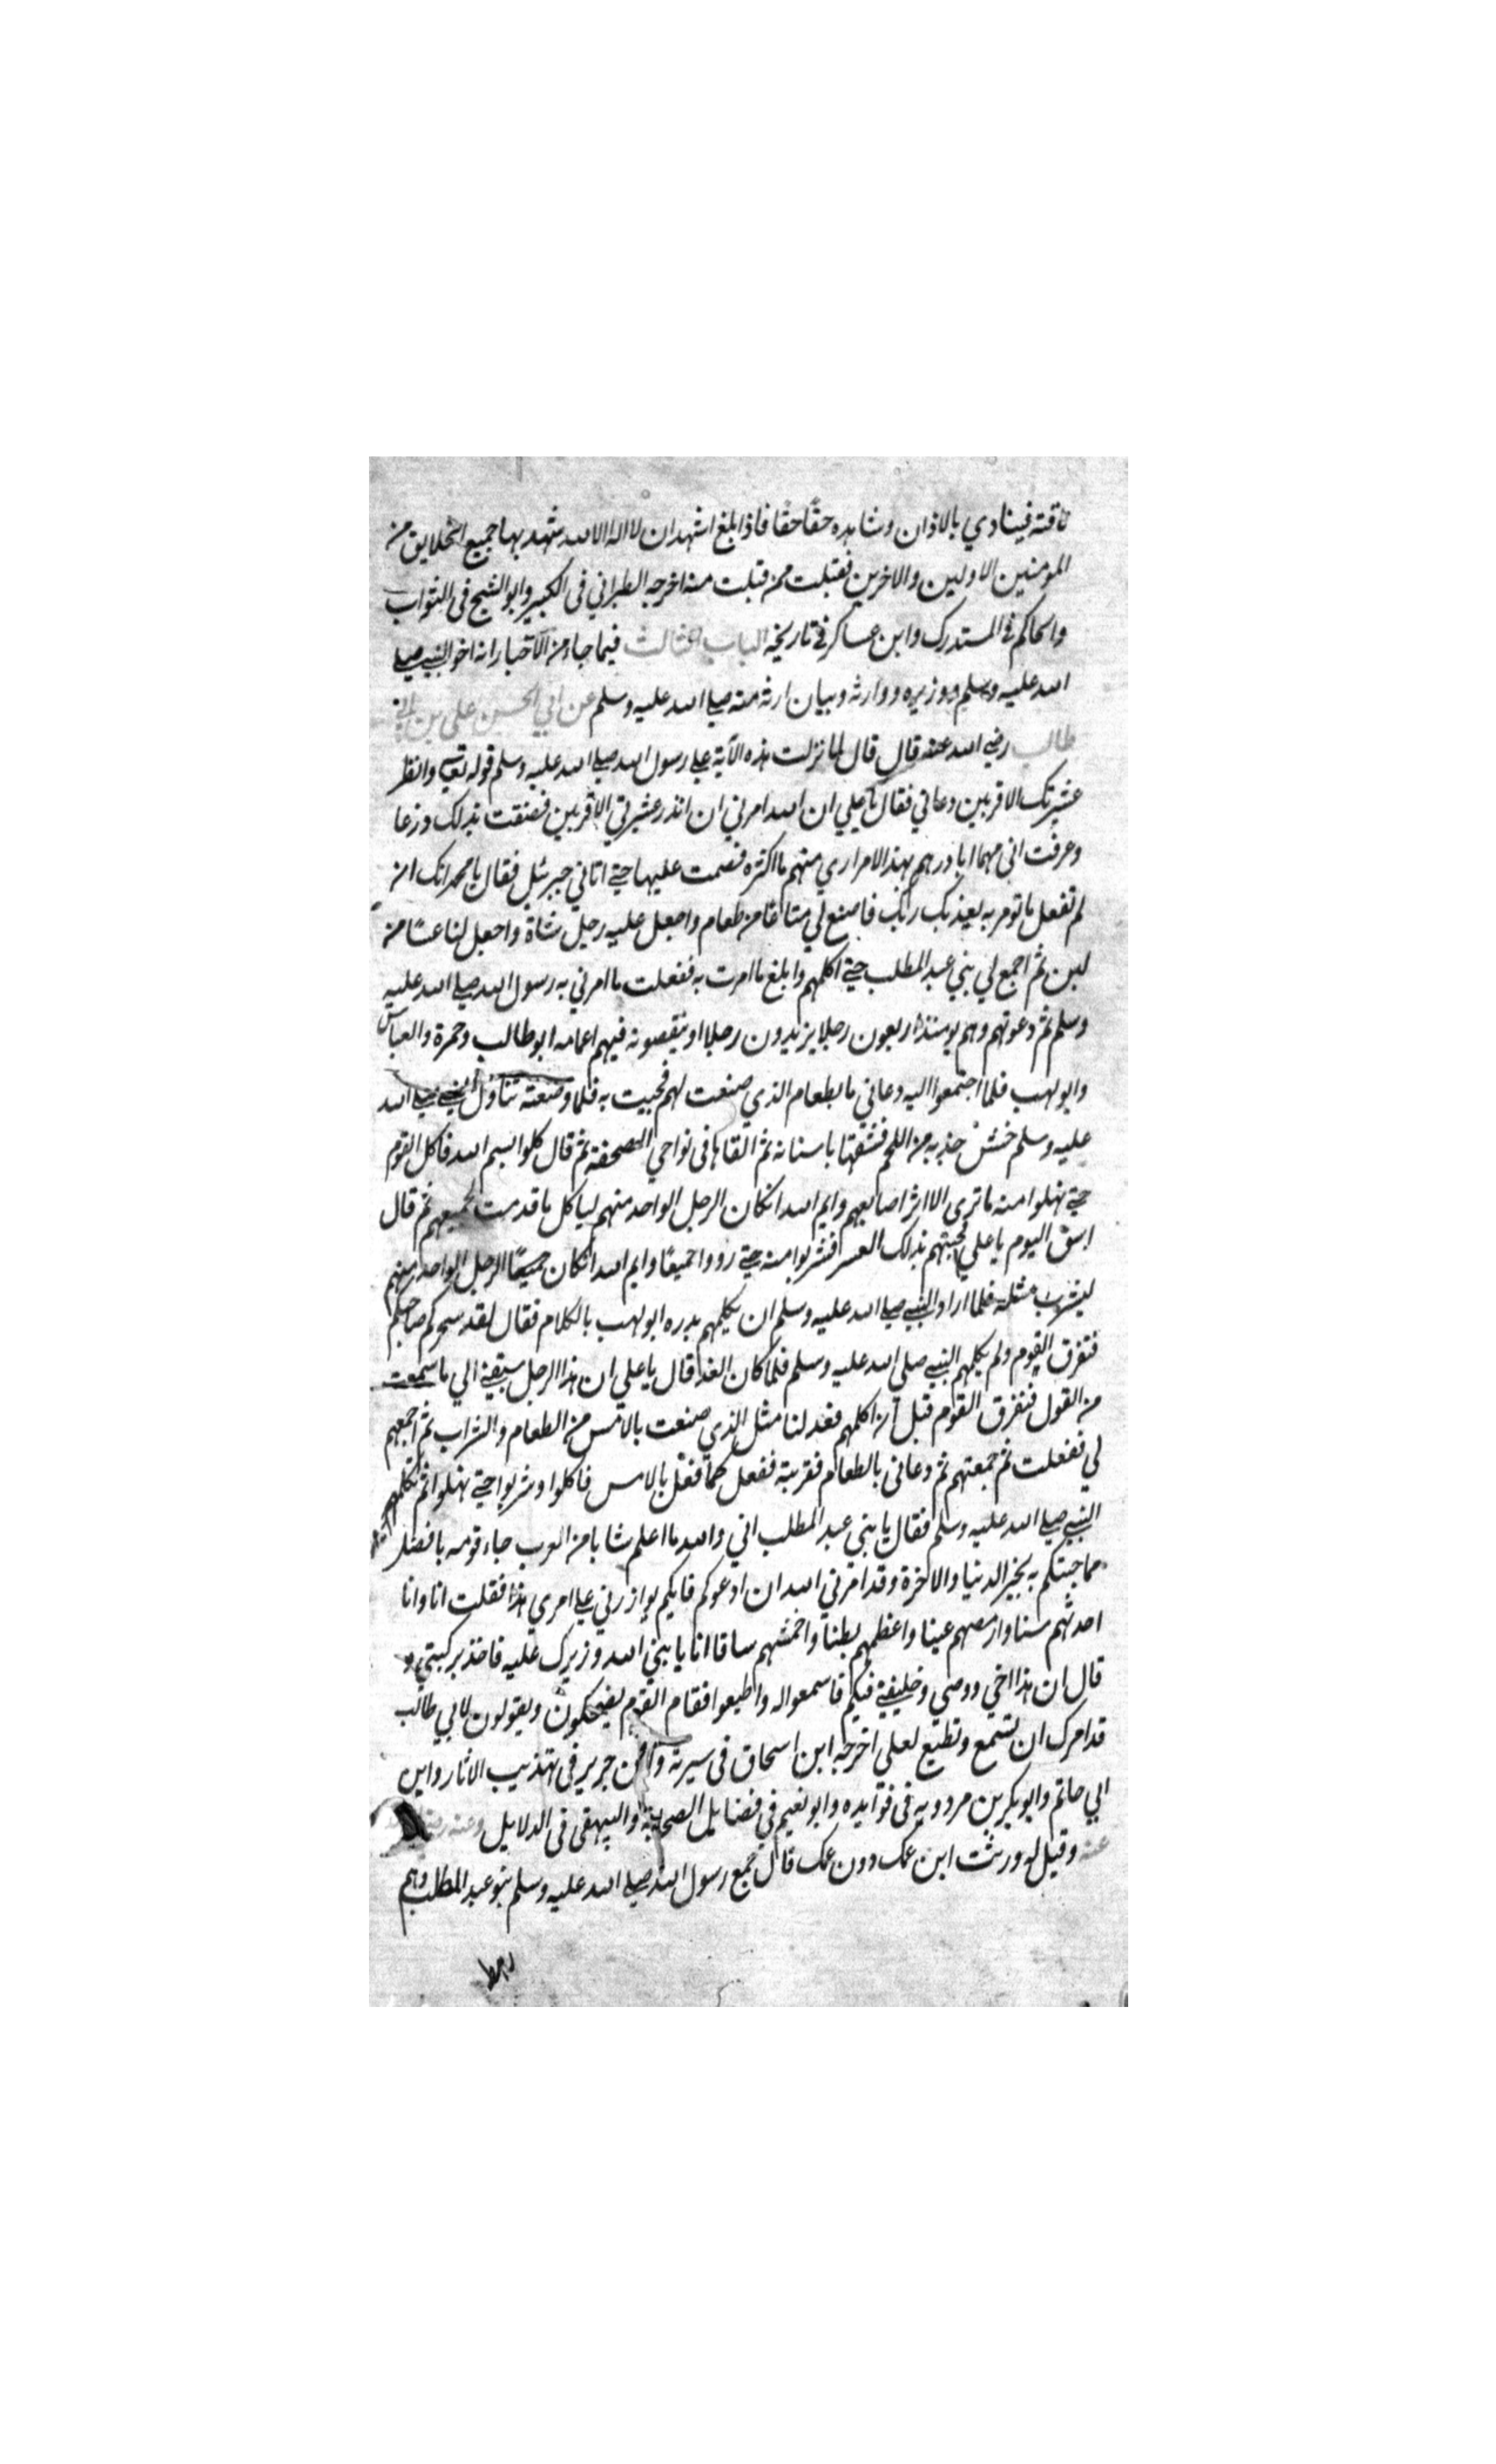 ناقته فينادي بالاذان وشاهده حقًا حقًا فاذا بلغ اشهد ان لا اله الا الله شهد بها جميع الخلايق من
المومنين الاولين والاخرين فقبلت ممن قبلت منه اخرجه الطبراني فى الكبير وابو الشيخ فى الثواب
والحاكم في المستدرك وابن عساكر في تاريخه الباب الثالث فيما جاء من الاخبار انه اخو النبي صلي
الله عليه وسلم ووزيره ووارثه وبيان ارثه منه صلي الله عليه وسلم عن ابي الحسن علي بن ابي
طالب رضي الله عنه قال قال لما نزلت هذه الآية علي رسول الله صلي الله عليه وسلم قوله تعالي وانظر
عشيرتك الاقربين دعاني فقال يا علي ان الله امرني ان انذر عشيرتي الاقربين فضقت بذلك ذرعا
وعرفت انى مهما ابادرهم بهذا الامر اري منهم ما اكثره فصمت عليها حتي اتاني جبرئيل فقال يا محمد انك ان
لم تفعل ما تومر به يعذبك ربك فاصنع لي متاعًا من طعام واجعل عليه رجل شاة واجعل لنا عسًا من
لبن ثم اجمع لي بني عبد المطلب حتي اكلمهم وابلغ ما امرت به ففعلت ما امرني به رسول الله صلي الله عليه
وسلم ثم دعوتهم وهم يومئذ اربعون رجلا يزيدون رجلا او ينقصونه فيهم اعمامه ابو طالب وحمزة والعباس
وابو لهب فلما اجتمعوا اليه دعاني بالطعام الذي صنعت لهم فجيت به فلما وضعته تناول النبي صلي الله
عليه وسلم جذبه من اللحم فشقها باسنانه ثم القاها فى نواحي الصحفة ثم قال كلوا بسم الله فاكل القوم
حتي نهلوا منه ما تري الا اثر اصابعهم وايم الله ان كان الرجل الواحد منهم لياكل ما قدمت لجميعهم ثم قال
اسق اليوم يا علي فجيتهم بذلك العس فشربوا منه حتي رووا جميعًا وايم الله ان كان جميعًا الرجل الواحد منهم
ليشرب مثله فلما اراد النبي صلي الله عليه وسلم ان يكلمهم بدره ابو لهب بالكلام فقال لقد سحركم صاحبكم
فتفرق القوم ولم يكلمهم النبي صلي الله عليه وسلم فلما كان الغد قال يا علي ان هذا الرجل سبقني الي ما سمعت
من القول فتفرق القوم قبل ان اكلمهم فعد لنا مثل الذي صنعت بالامس من الطعام والشراب ثم اجمعهم
لي ففعلت ثم جمعتهم ثم دعاني بالطعام فقربته ففعل كما فعل بالامس فاكلوا وشربوا حتي نهلوا ثم تكلم
النبي صلي الله عليه وسلم فقال يا بني عبد المطلب اني والله ما اعلم شابا من العرب جاء قومه بافضل
مما جيتكم به بخير الدنيا والاخرة وقد امرني الله ان ادعوكم فايكم يوازرني علي امري هذا فقلت انا وانا
احدثهم سنا وارمصهم عينا واعظمهم بطنا واخمشهم ساقا انا يا نبي الله وزيرك عليه فاخذ بركبتي و
قال ان هذا اخي ووصي وخليفتي فيكم فاسمعوا له واطيعوا فقام القوم يضحكون ويقولون لابي طالب
قد امرك ان تسمع وتطيع لعلي اخرجه ابن اسحاق فى سيرته وابن جرير فى تهذيب الاثار وابن
ابي حاتم وابو بكر بن مردويه فى فوايده وابو نعيم في فضايل الصحابة والبيهقي فى الدلايل وعنه
عنه وقيل له ورثت ابن عمك دون عمك قال جمع رسول الله صلي الله عليه وسلم بنو عبد المطلب وهم
رهط